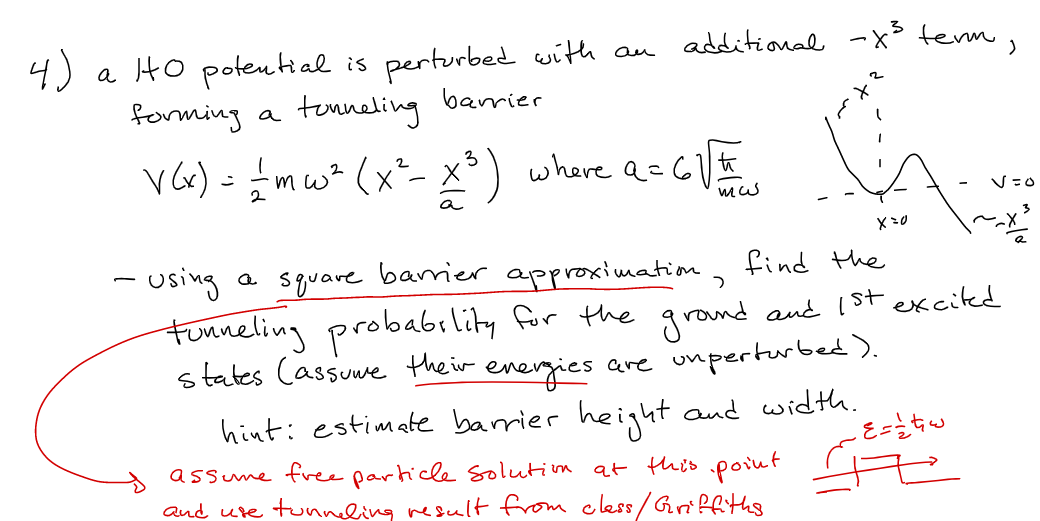 4) a HO potential is perturbed with an additional -x³ term,
forming a tunneling barrier
x²
V(x) = ½ m ω² (x² - x³/a) where a = 6√(ħ/mω)
V=0
x=0
~ -x³/a
- using a square barrier approximation, find the
tunneling probability for the ground and 1st excited
states (assume their energies are unperturbed).
hint: estimate barrier height and width.
ε = ½ ħω
assume free particle solution at this point
and use tunneling result from class/Griffiths